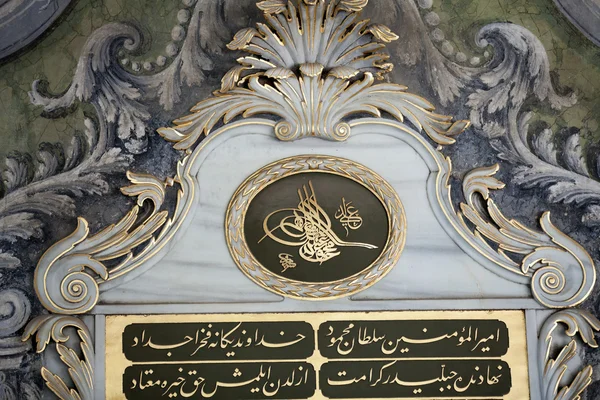 عدلی
امیرالمؤمنین سلطان محمود
خداوند یکانه فخر اجداد
نهادنده جبلیدر کرامت
ازلدن ایلمش حق خیره معتاد